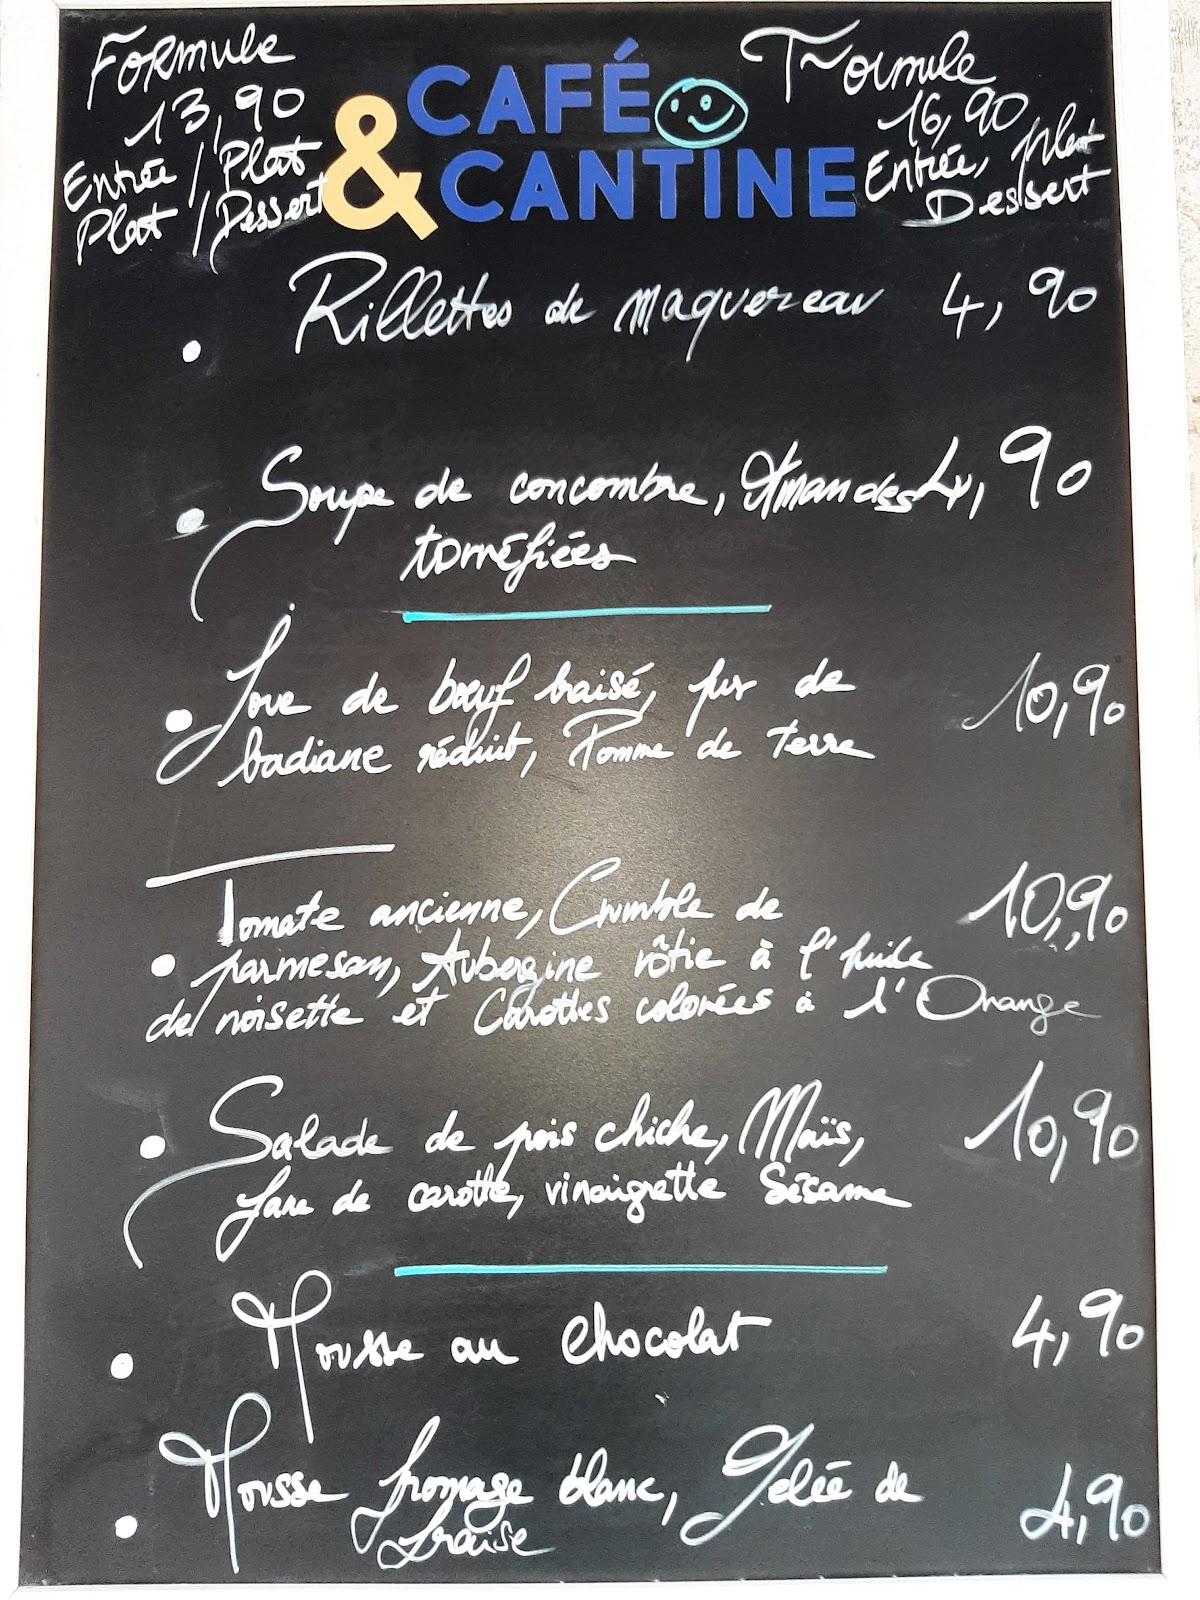 Formule
13,90
Entrée / Plat
Plat / Dessert
& CAFÉ
CANTINE
Formule
16,90
Entrée, Plat
Dessert
Rillettes de maquereau 4,90
Soupe de concombre, Amandes 4,90
torréfiées
Joue de bœuf braisé, jus de 10,90
badiane réduit, Pomme de terre
Tomate ancienne, Crumble de 10,90
parmesan, Aubergine rôtie à l'huile
de noisette et Carottes colorées à l'Orange
Salade de pois chiche, Maïs, 10,90
fane de carotte, vinaigrette Sésame
Mousse au chocolat 4,90
Mousse fromage blanc, Gelée de 4,90
fraise